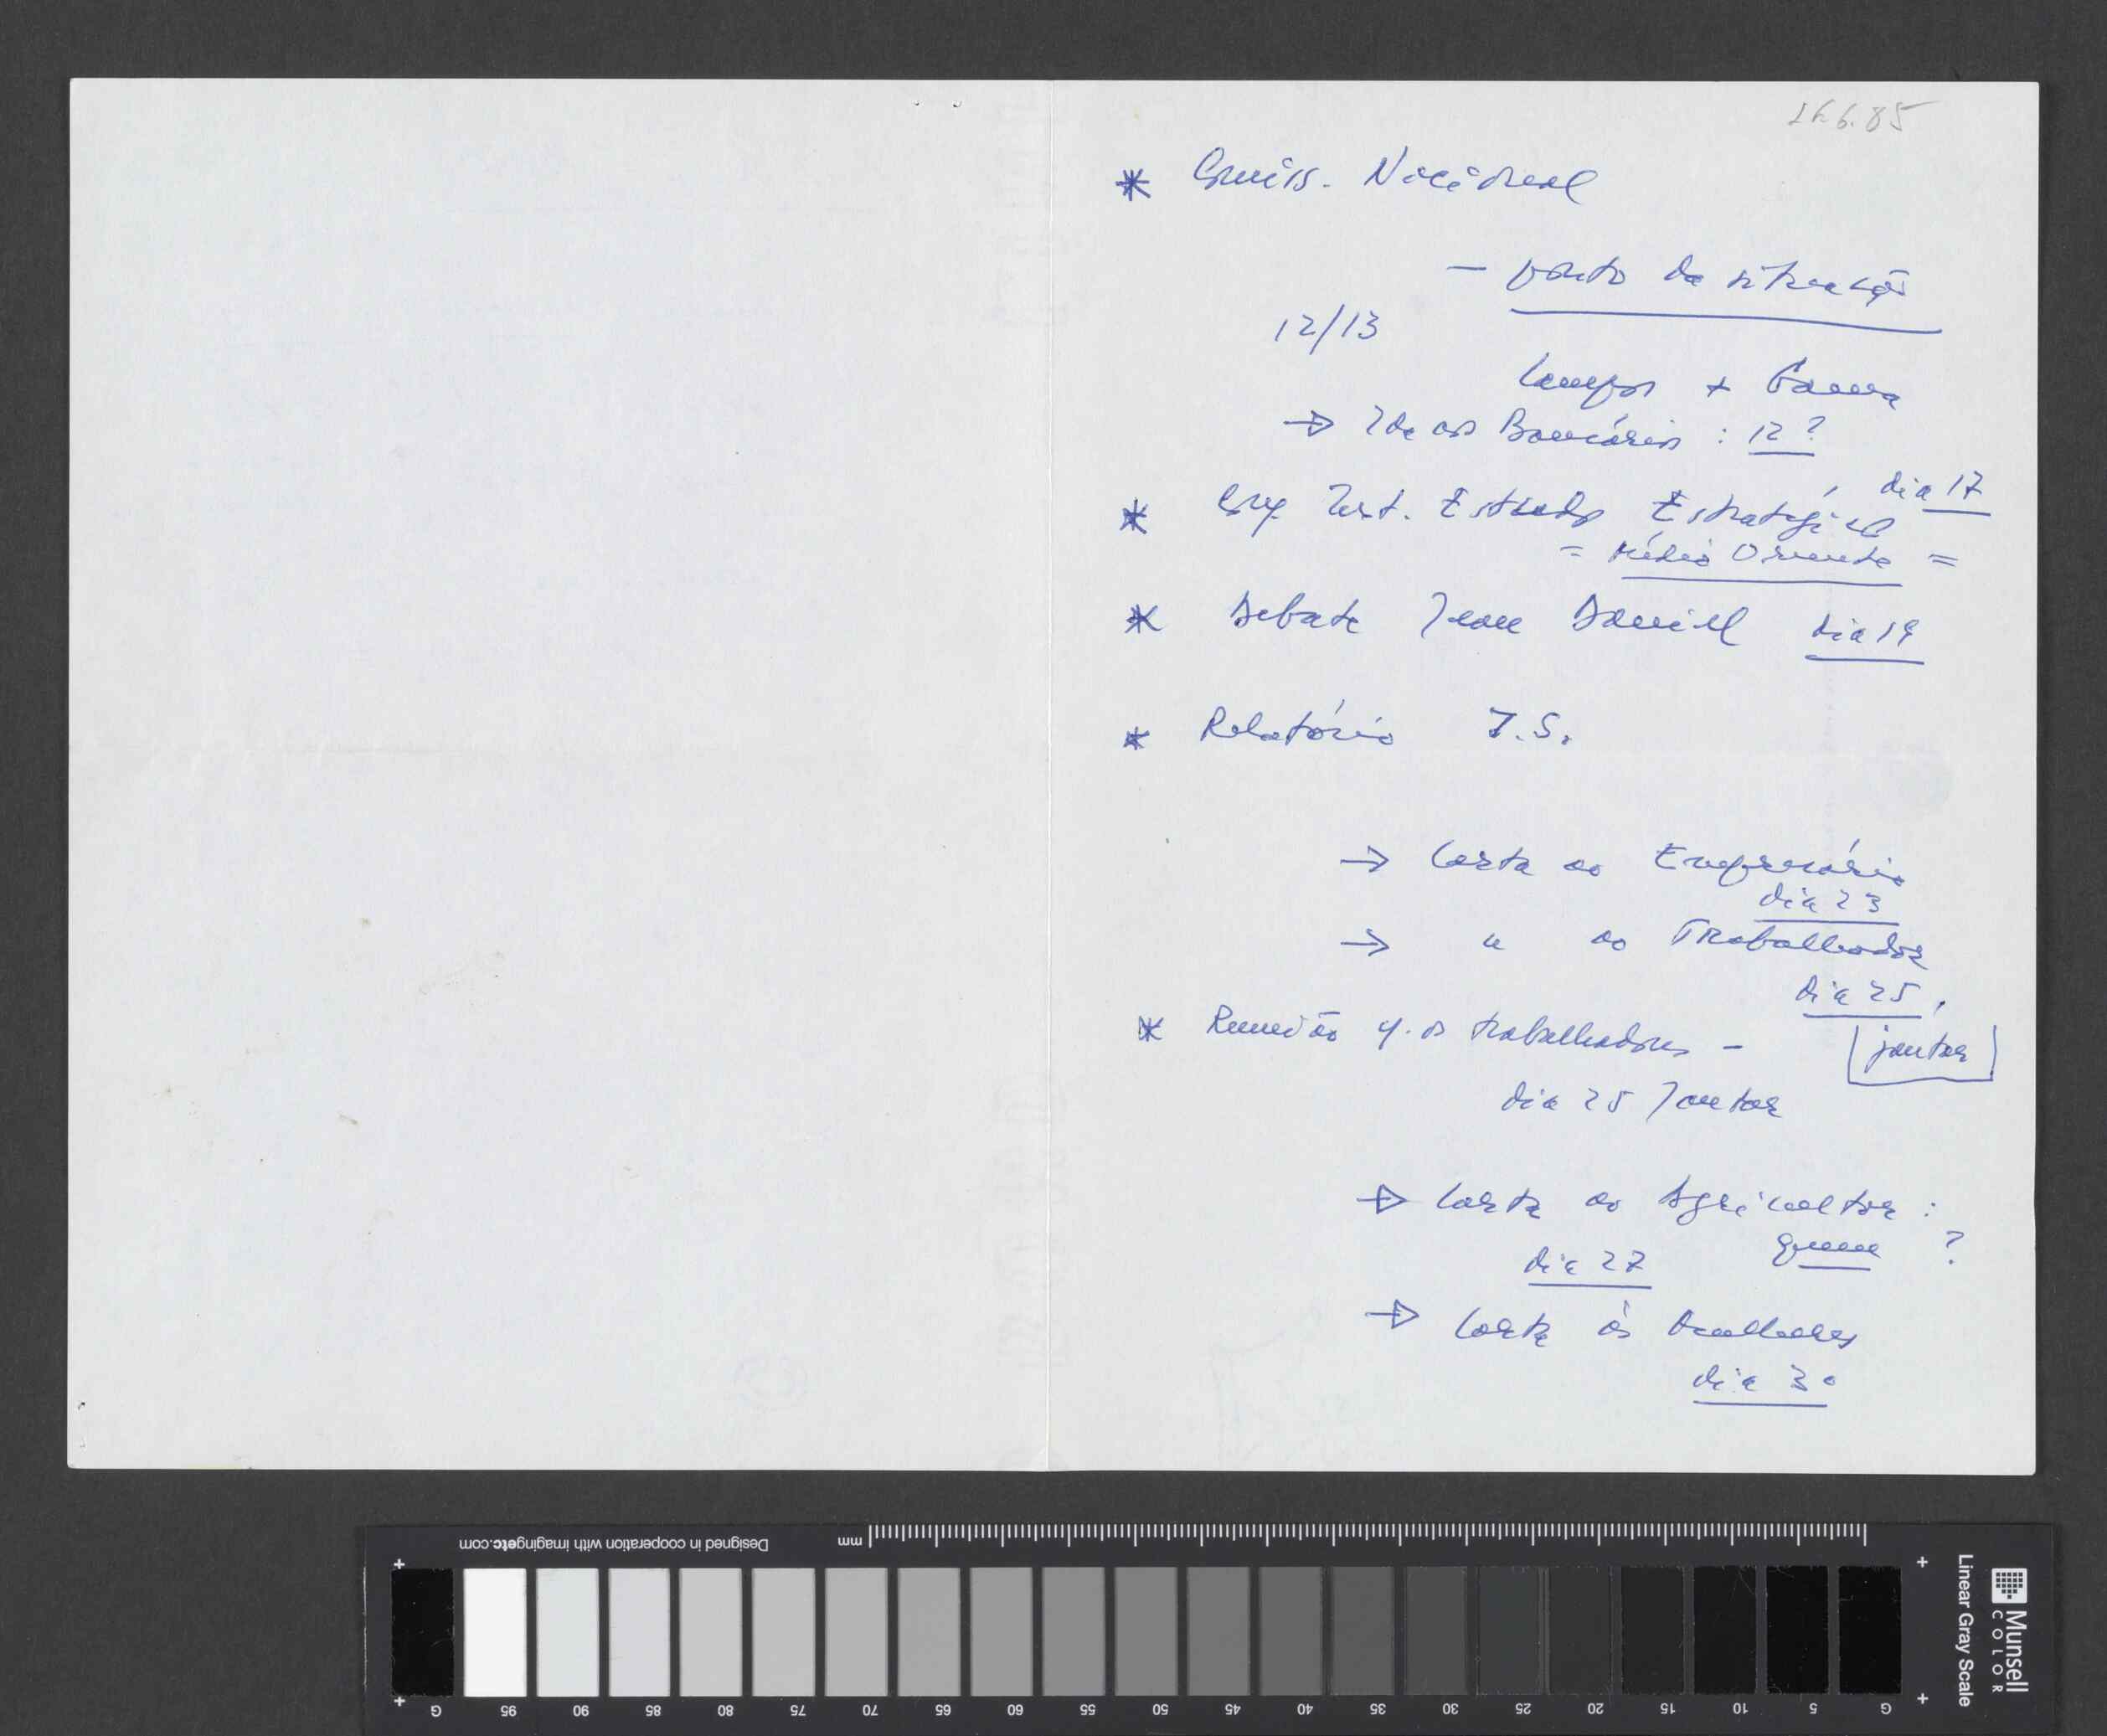 6.85
* Comiss. Nacional
— ponto da situação
12/13
Campos + Gama
→ Ida aos Bancários : 12 ?
dia 17
* Conf. Inst. Estudos Estratégicos
= Médio Oriente =
* Debate Jean Daniel dia 19
* Relatório I.S.
→ Carta ao Empresário
dia 23
→ " ao Trabalhador
dia 25,
* Reunião c. os trabalhadores – jantar
dia 25 Jantar
→ Carta ao Agricultor :
dia 27 quem ?
→ Carta às Mulheres
dia 30
Designed in cooperation with imagingetc.com
mm
G 95 90 85 80 75 70 65 60 55 50 45 40 35 30 25 20 15 10 5 G
Linear Gray Scale
Munsell
COLOR